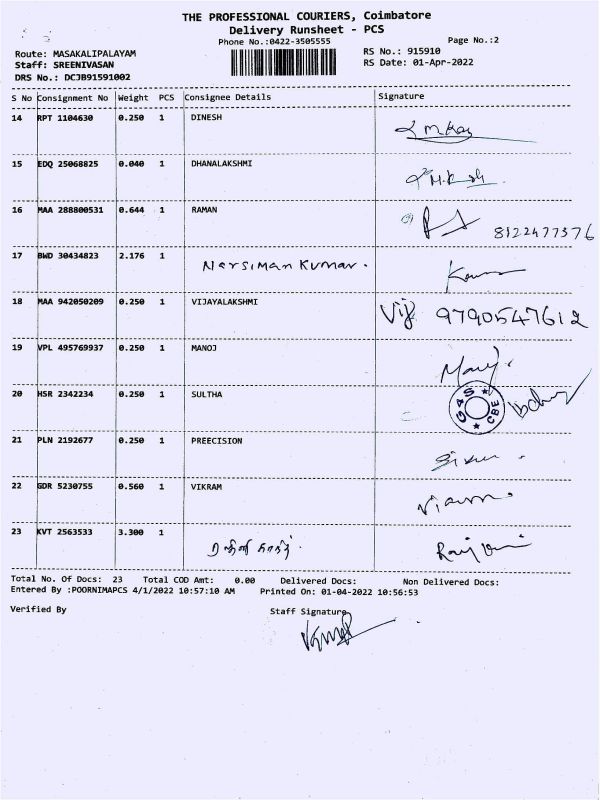 THE PROFESSIONAL COURIERS, Coimbatore
Delivery Runsheet - PCS
Phone No.:0422-3505555
Page No.:2
Route: MASAKALIPALAYAM
RS No.: 915910
Staff: SREENIVASAN
RS Date: 01-Apr-2022
DRS No.: DCJB91591002
S No Consignment No Weight PCS Consignee Details Signature
14 RPT 1104630 0.250 1 DINESH
15 EDQ 25068825 0.040 1 DHANALAKSHMI
16 MAA 288800531 0.644 1 RAMAN 8122477376
17 BWD 30434823 2.176 1 Narsiman Kumar.
18 MAA 942050209 0.250 1 VIJAYALAKSHMI Vij 9790547612
19 VPL 495769937 0.250 1 MANOJ Manoj.
20 HSR 2342234 0.250 1 SULTHA G4S CBE
21 PLN 2192677 0.250 1 PREECISION
22 GDR 5230755 0.560 1 VIKRAM
23 KVT 2563533 3.300 1
Total No. Of Docs: 23 Total COD Amt: 0.00 Delivered Docs: Non Delivered Docs:
Entered By :POORNIMAPCS 4/1/2022 10:57:10 AM Printed On: 01-04-2022 10:56:53
Verified By Staff Signature